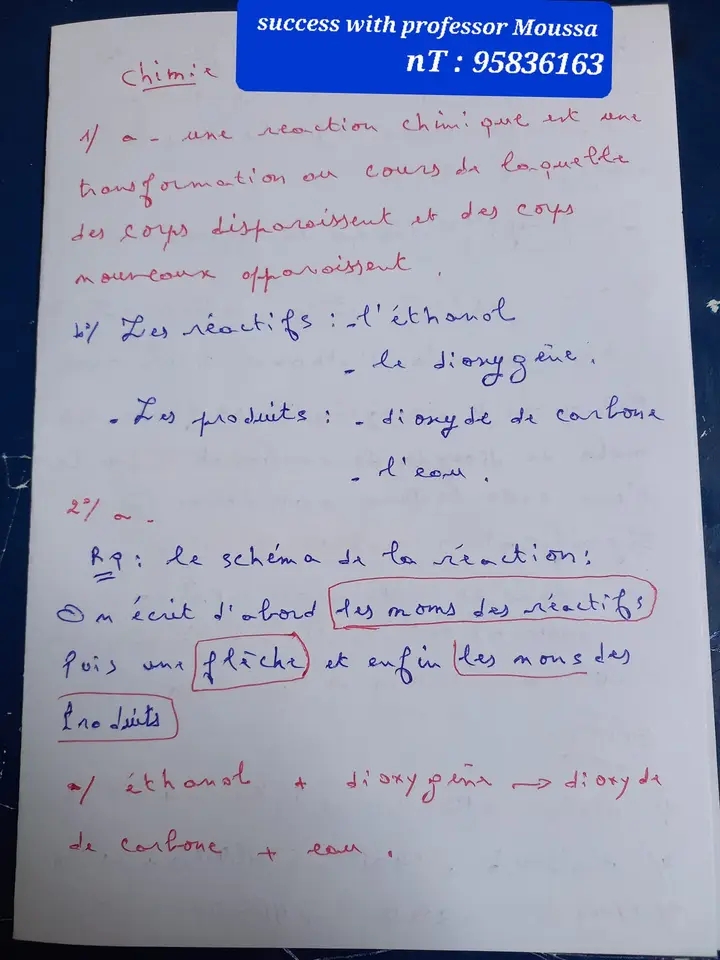 success with professor Moussa
nT : 95836163
Chimie
1/ a - une reaction chimique est une
transformation au cours de laquelle
des corps disparaissent et des corps
nouveaux apparaissent.
b°/ Les réactifs : - l'éthanol
- le dioxygène.
. Les produits : - dioxyde de carbone
- l'eau.
2°/ a -
Rq : le schéma de la réaction :
On écrit d'abord les noms des réactifs
Puis une flèche et enfin les noms des
Produits
a/ éthanol + dioxygène → dioxyde
de carbone + eau.